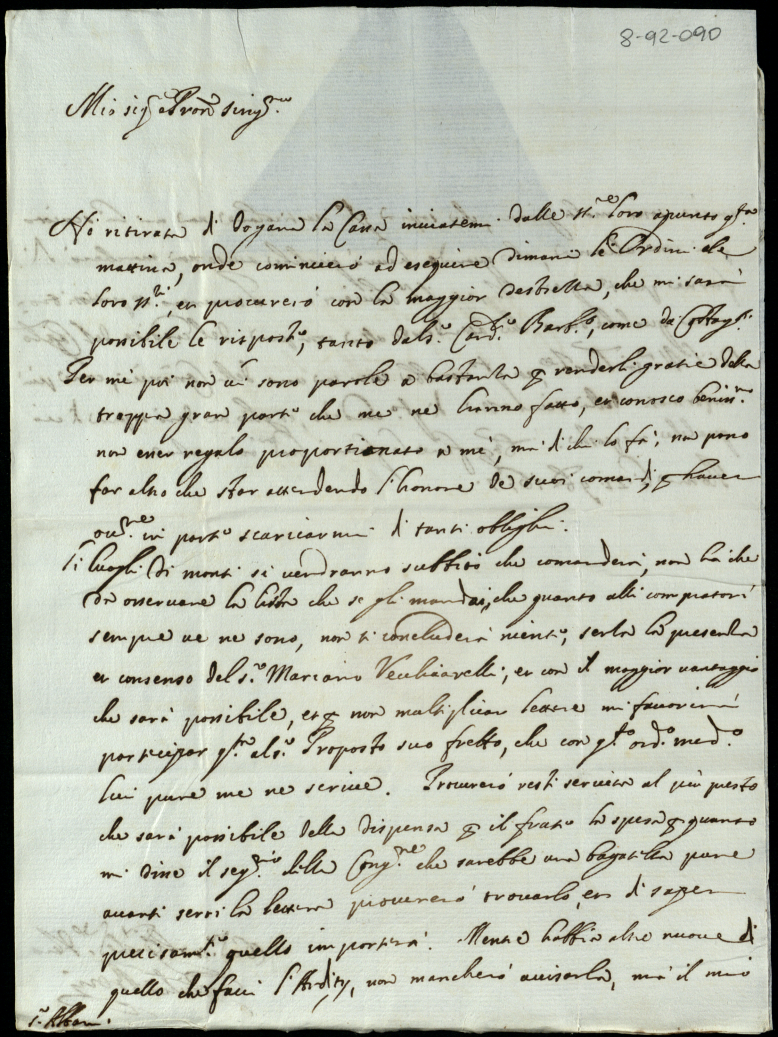 8-92-090
Mio sig.re e Pron sing.mo
Hò ritirata di Dogana la Cassa inviatemi dalle SS.rie loro apunto q.sta
mattina, onde comincierò ad eseguire dimani li Ordini de
loro SS.ri, et procurerò con la maggior destrezza, che mi sarà
possibile le rispost.e, tanto dal s.r Card.le Barb.o, come da
Per me poi non vi sono parole a bastanza p renderli gratie della
troppa gran parte che me ne hanno fatto, et conosco beniss.mo
non esser regalo proportionato a mè, mà di chi lo fà; ne posso
far altro che star attendendo l'honore de suoi comandi, p haver
in parte scaricarmi di tanti oblighi.
Li luoghi di monti si vendranno subbito che comanderà, non hà che
da osservare la lista che se gli mandai, che quanto alli compratori
sempre ve ne sono, non si concluderà niente, senza la presenza
et consenso del s.r Marcario Vecchiarelli; et con il maggior vantaggio
che sarà possibile, et p non multiplicar lettere mi favorirà
participar q.to al s.r Proposto suo frello, che con q.sto ord.o med.o
lui pure me ne scrive. Procurerò resti servita al più presto
che sarà possibile della dispensa p il frate la spesa p quanto
mi disse il seg.rio della Cong.ne che sarebbe una bagatella pure
avanti serri la lettera procurerò trovarlo, et di saper
precisam.te quello importerà. Mentre habbia altre nuove di
quello che facci l'Ardity, non mancherò avisarla, mà il mio
s.r Albani.